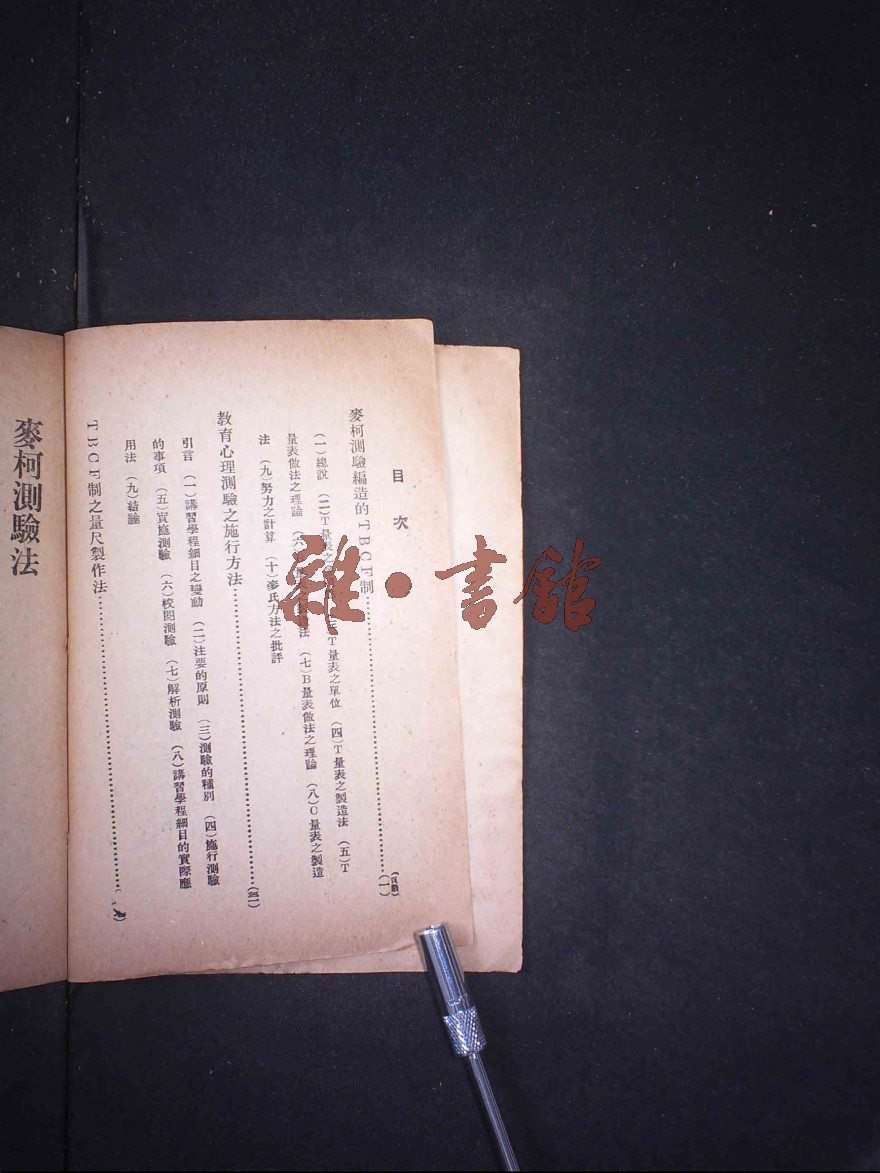 目次
(頁數)
麥柯測驗編造的TBCF制……(一)
(一)總說 (二)T量表之 T量表之單位 (四)T量表之製造法 (五)T
量表做法之理論 (六 法 (七)B量表做法之理論 (八)C量表之製造
法 (九)努力之計算 (十)麥氏方法之批評
教育心理測驗之施行方法……
引言 (一)講習學程細目之變動 (二)注要的原則 (三)測驗的種別 (四)施行測驗
的事項 (五)實施測驗 (六)校閱測驗 (七)解析測驗 (八)講習學程細目的實際應
用法 (九)結論
TBCF制之量尺製作法……
麥柯測驗法
雜·書館